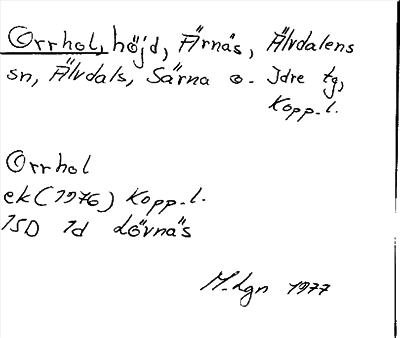 Orrhol, höjd, Årnäs, Älvdalens
sn, Älvdals, Särna o. Idre tg,
Kopp. l.
Orrhol
ek (1976) Kopp. l.
15D 1d Lövnäs
M. Lgn 1977